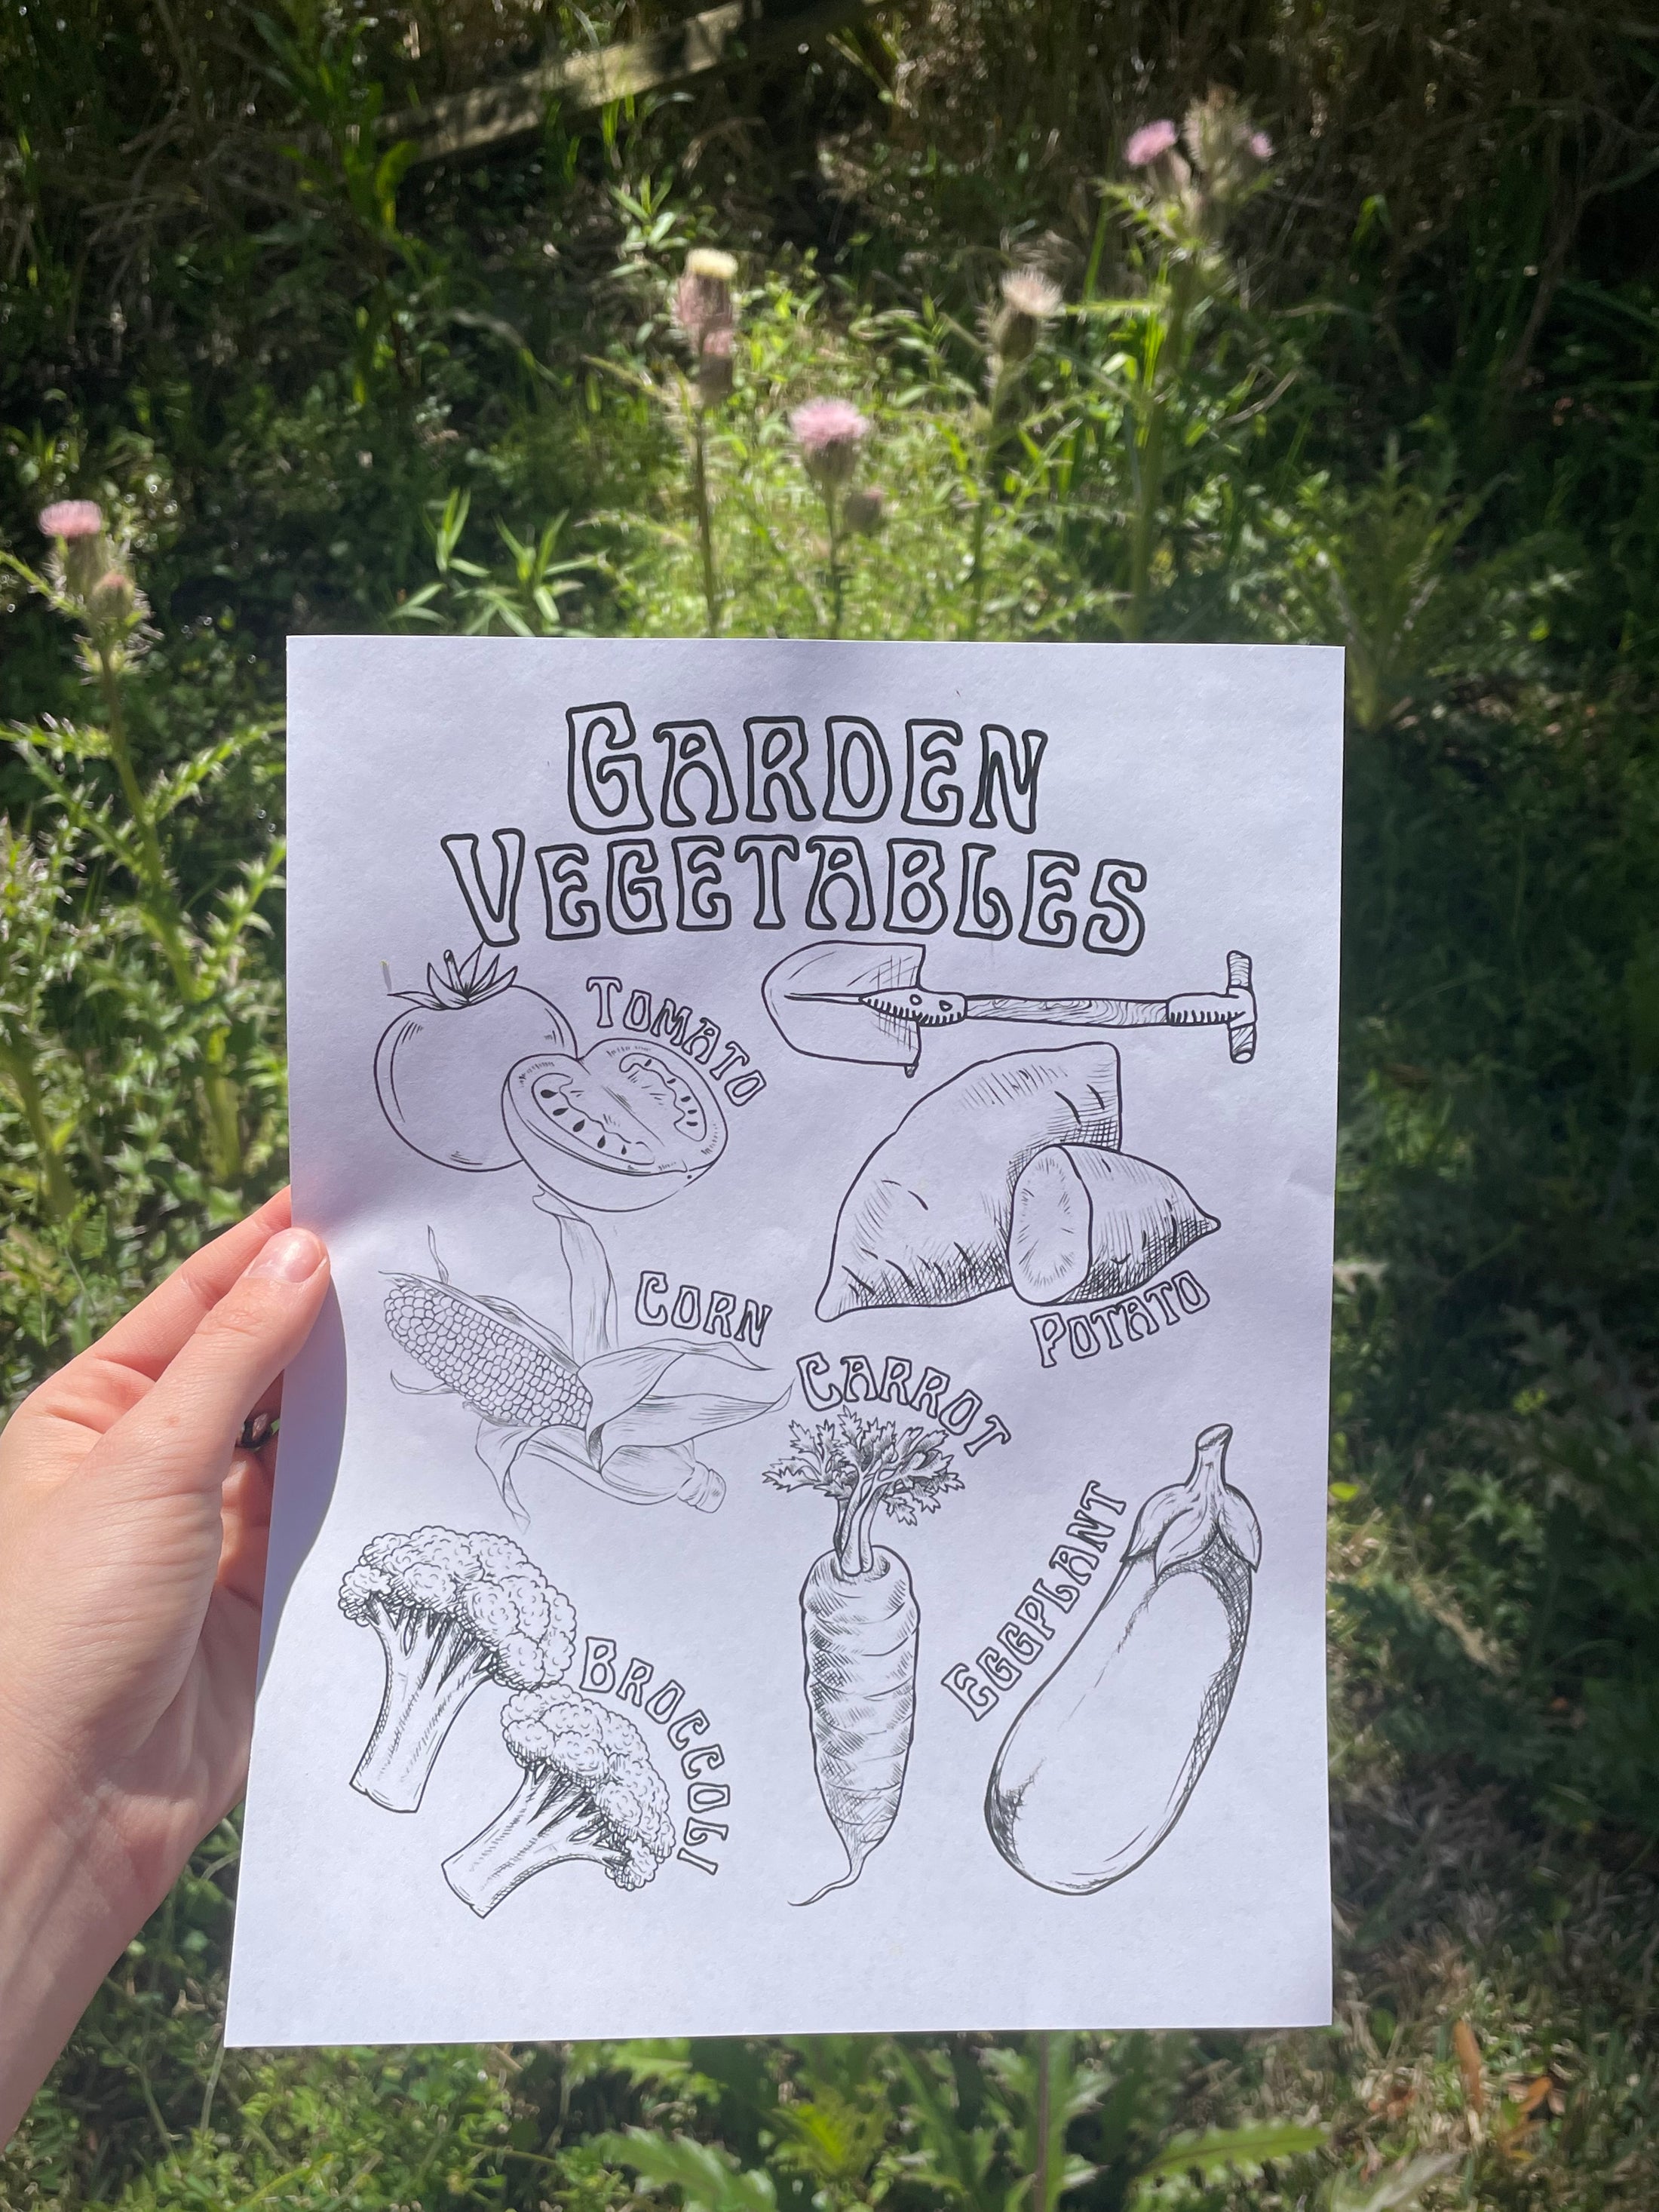 GARDEN
VEGETABLES
TOMATO
POTATO
CORN
CARROT
EGGPLANT
BROCCOLI